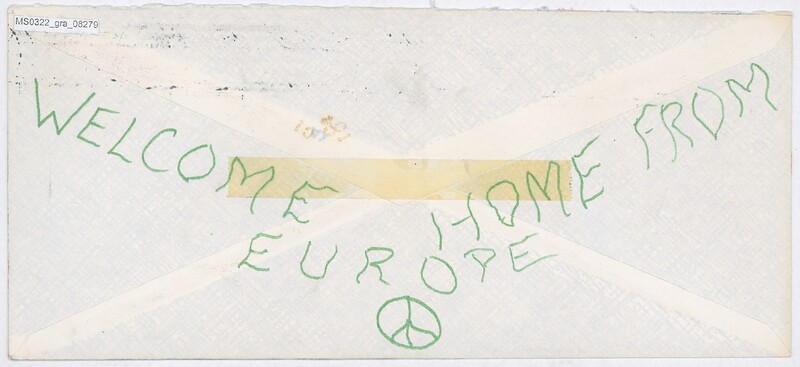 MS0322_gra_08279
WELCOME HOME FROM
EUROPE